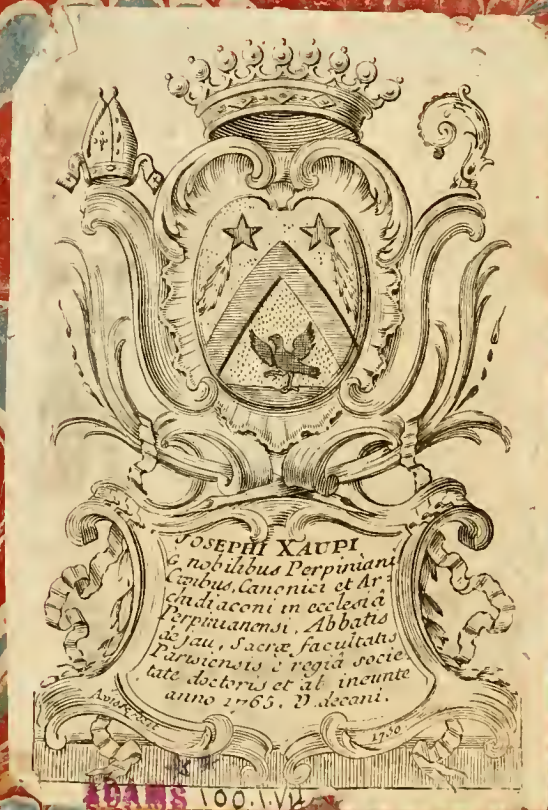 JOSEPHI XAUPI
è nobilibus Perpiniani
Civibus, Canonici et Ar=
chidiaconi in ecclesiâ
Perpinianensi, Abbatis
de Jau, Sacræ facultatis
Parisiensis è regiâ socie-
tate doctoris et ab ineunte
anno 1765. D. decani.
Aviсe fecit
1750
ADAMS 100.1